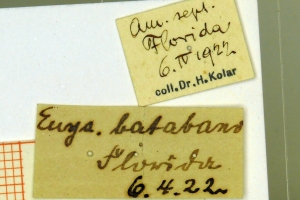 Am. sept.
Florida
6. IV 1922
coll. Dr. H. Kolar
Eurys. batabano
Florida
6.4.22